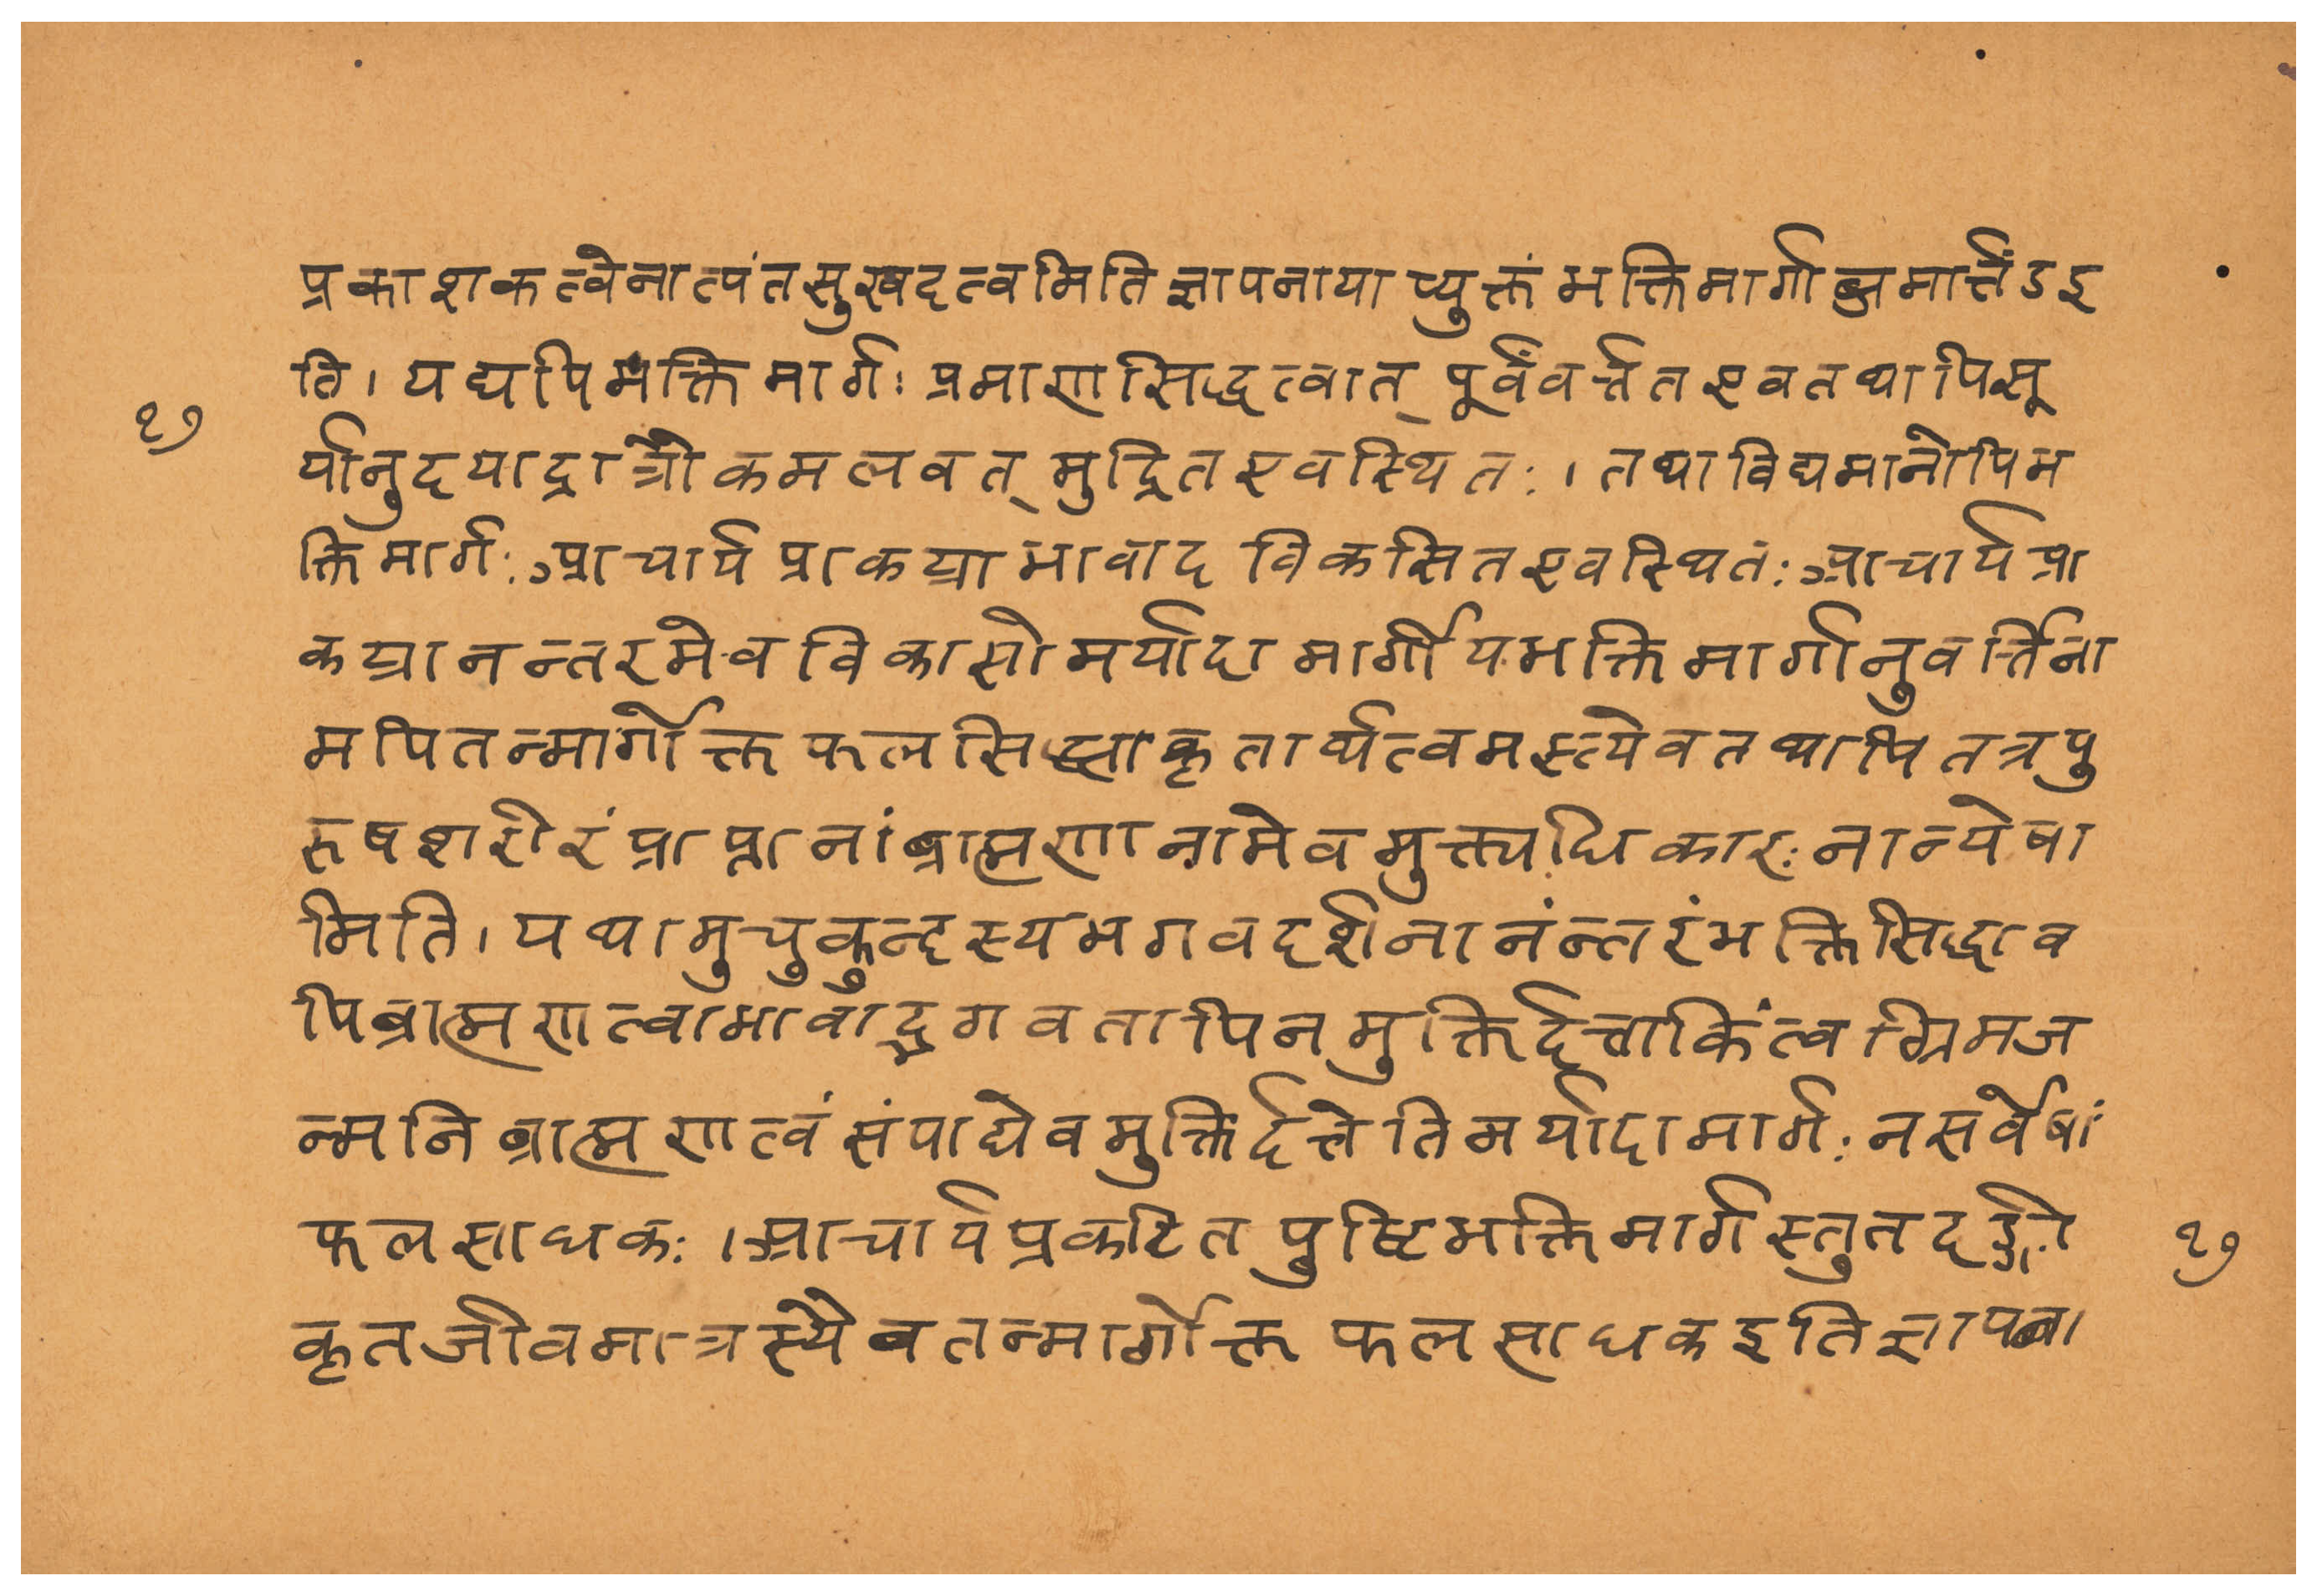 प्रकाशकत्वेनात्यंतसुखदत्वमितिज्ञापनायाप्युक्तंभक्तिमार्गाब्जमार्त्तंडइ
ति। यद्यपिभक्तिमार्गः प्रमाणसिद्धत्वात् पूर्वंवर्त्ततएवतथापिसू
१७
र्यानुदयाद्रात्रौकमलवत् मुद्रितएवस्थितः। तथाविद्यमानोपिभ
क्तिमार्गः आचार्यप्राकट्याभावादविकसितएवस्थितः आचार्यप्रा
कट्यानन्तरमेवविकासोमर्यादामार्गीयभक्तिमार्गानुवर्त्तिना
मपितन्मार्गोक्तफलसिद्ध्याकृतार्थत्वमस्त्येवतथापितत्रपु
रुषशरीरंप्राप्तानांब्राह्मणानामेवमुक्त्यधिकारःनान्येषा
मिति। यथामुचुकुन्दस्यभगवदर्शनानंन्तरंभक्तिसिद्धाव
पिब्राह्मणत्वाभावाद्भगवतापिनमुक्तिर्दत्ताकिंत्वग्रिमज
न्मनिब्राह्मणत्वंसंपाद्यैवमुक्तिर्दत्तेतिमर्यादामार्गः नसर्वेषां
फलसाधकः। आचार्यप्रकटितपुष्टिभक्तिमार्गस्तुतदङ्गी
१७
कृतजीवमात्रस्यैवतन्मार्गोक्तफलसाधकइतिज्ञापना